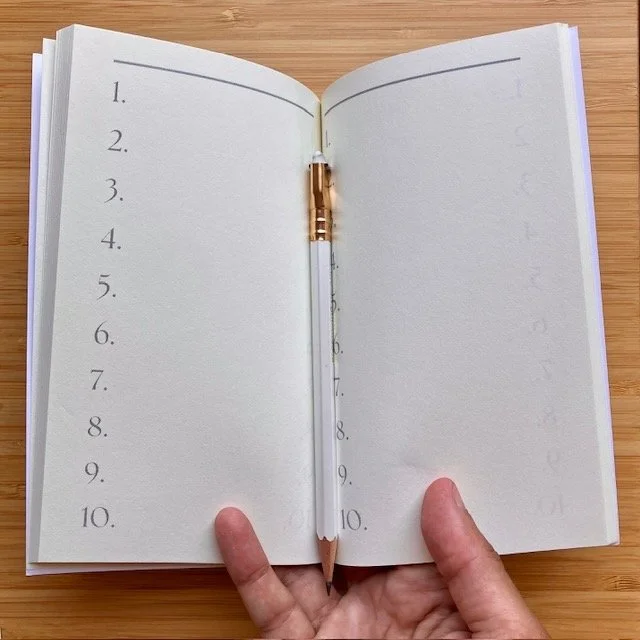 1.
2.
3.
4.
5.
6.
7.
8.
9.
10.
4.
5.
6.
7.
8.
9.
10.